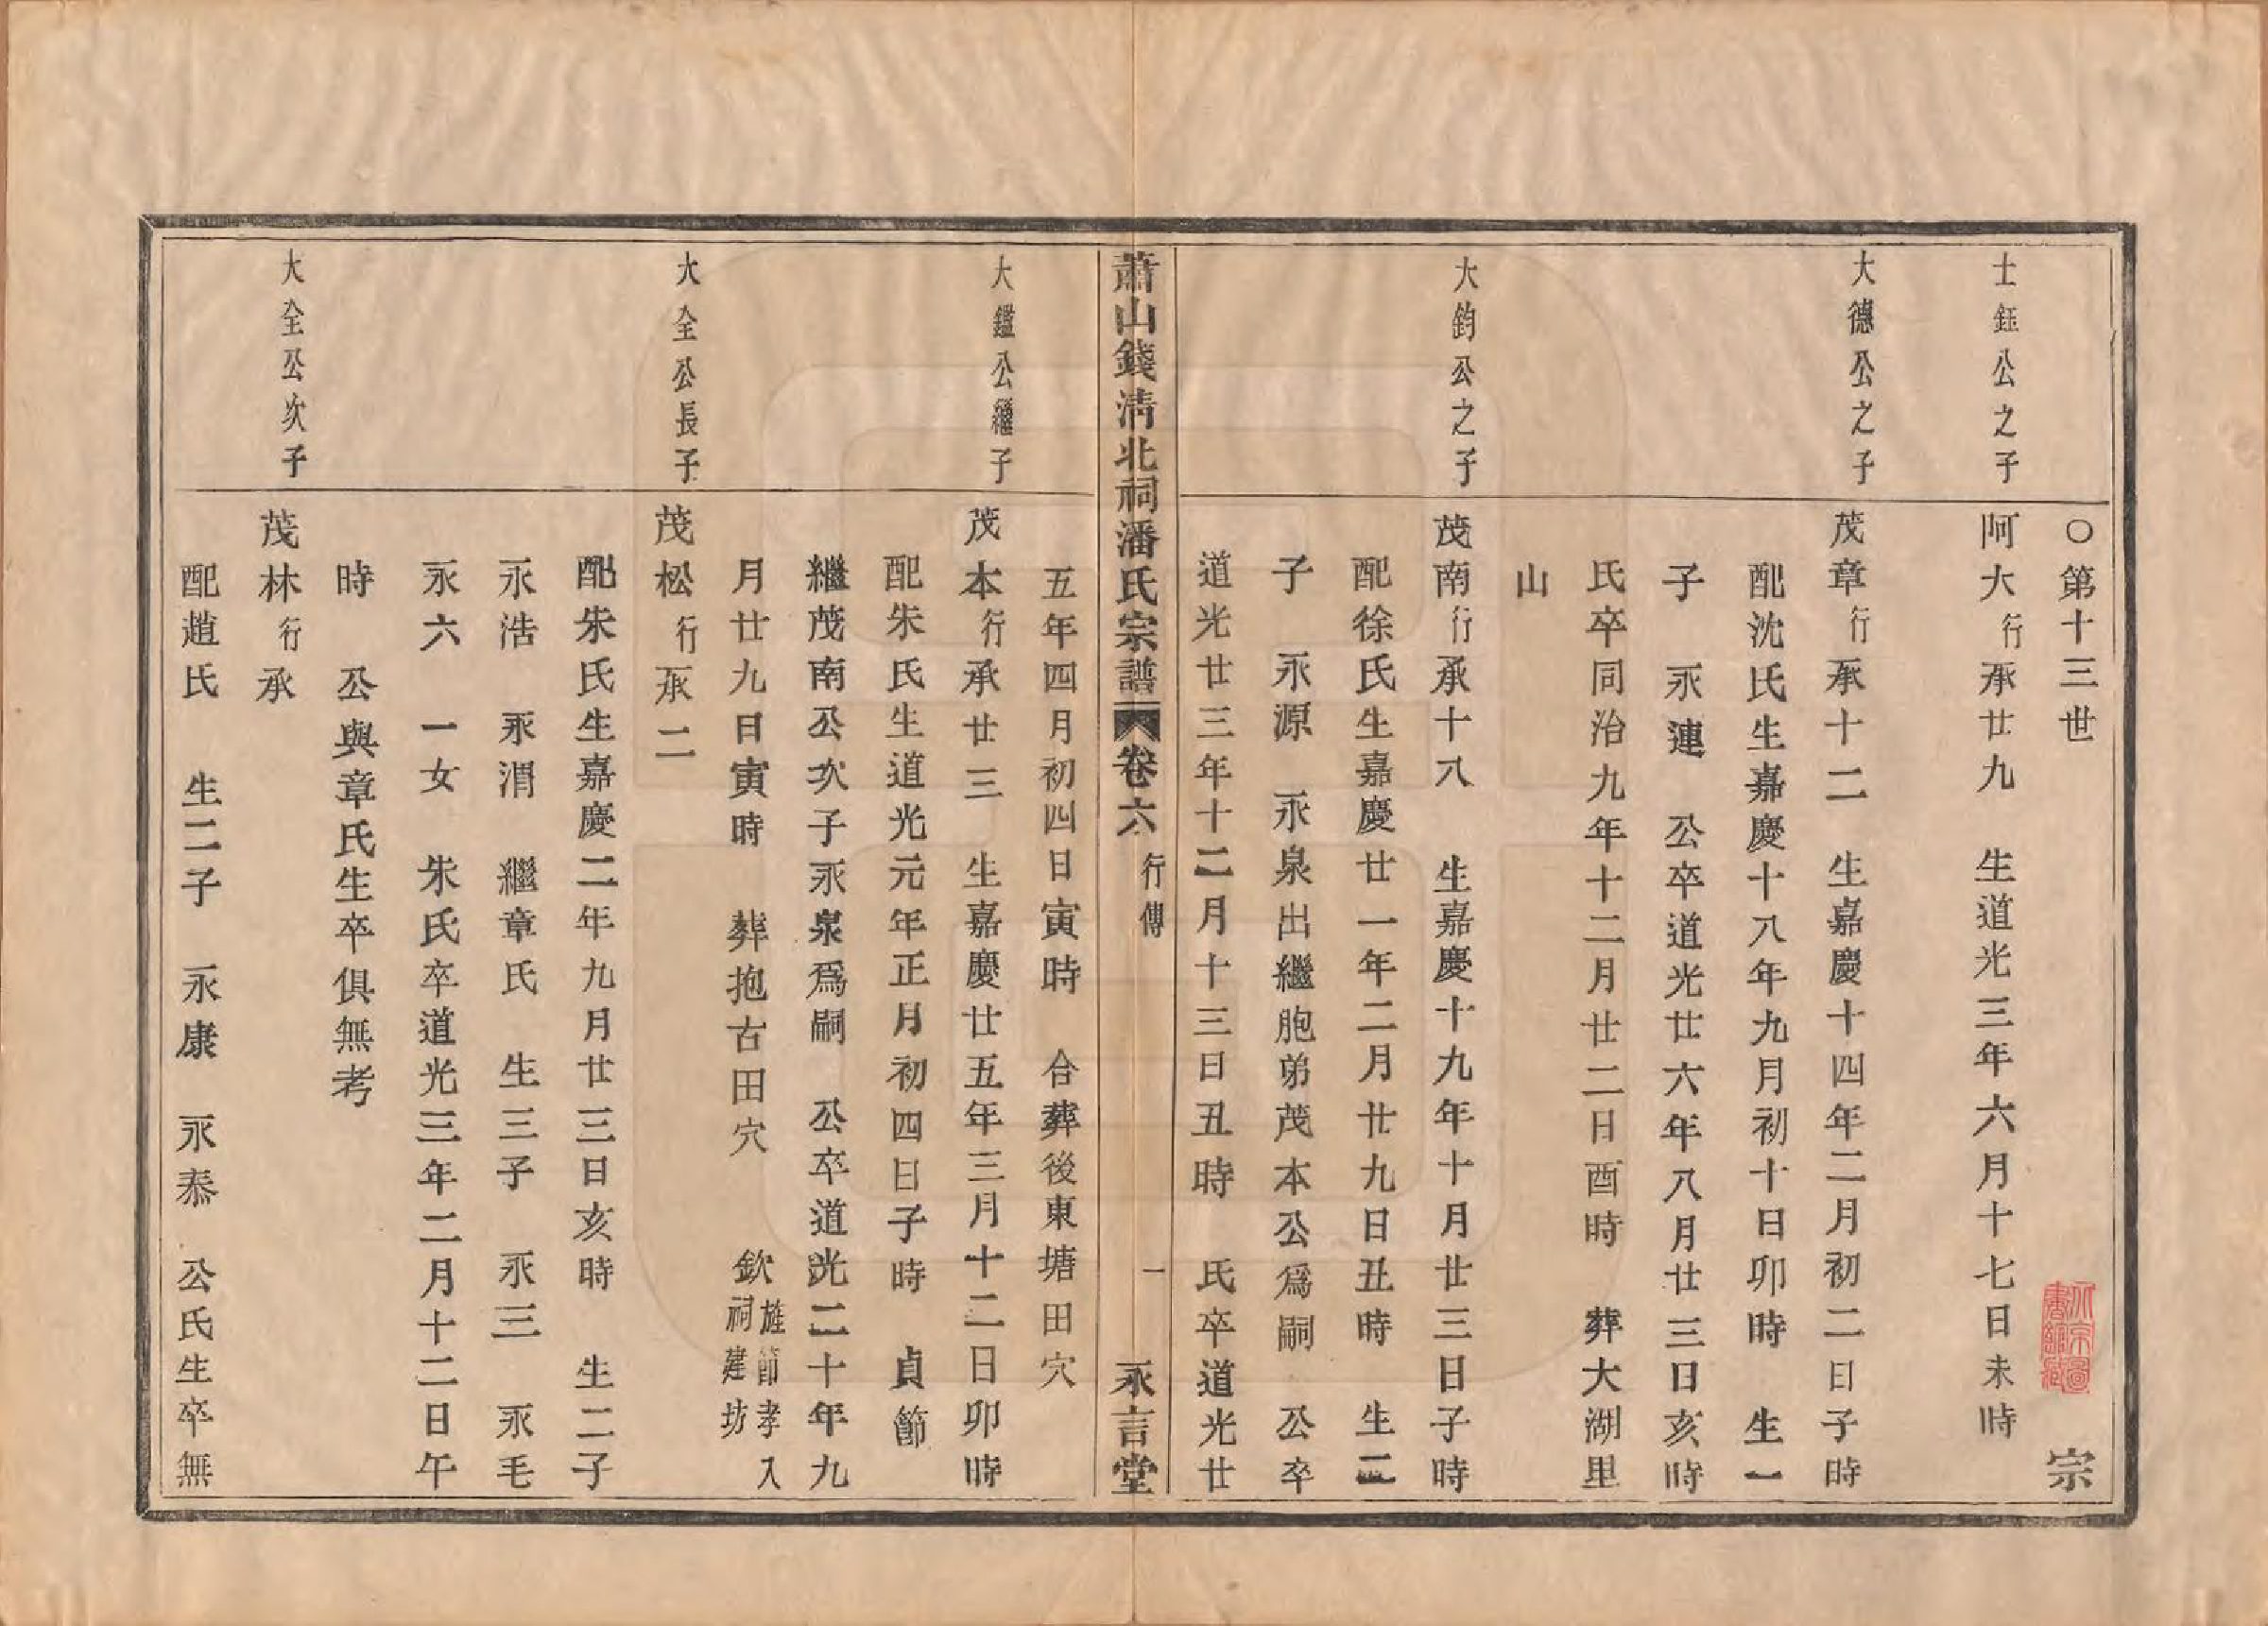 ○第十三世　宗
士鈺公之子
阿大行承廿九　生道光三年六月十七日未時
大德公之子
茂章行承十二　生嘉慶十四年二月初二日子時
配沈氏生嘉慶十八年九月初十日卯時　生一
子　永連　公卒道光廿六年八月廿三日亥時
氏卒同治九年十二月廿二日酉時　葬大湖里
山
大鈞公之子
茂南行承十八　生嘉慶十九年十月廿三日子時
配徐氏生嘉慶廿一年二月廿九日丑時　生二
子　永源　永泉出繼胞弟茂本公爲嗣　公卒
道光廿三年十二月十三日丑時　氏卒道光廿
蕭山錢淸北祠潘氏宗譜　卷六　行傳　一　永言堂
五年四月初四日寅時　合葬後東塘田穴
大鑑公繼子
茂本行承廿三　生嘉慶廿五年三月十二日卯時
配朱氏生道光元年正月初四日子時　貞節
繼茂南公次子永泉爲嗣　公卒道光二十年九
月廿九日寅時　葬抱古田穴　欽旌節孝入祠建坊
大全公長子
茂松行承二
配朱氏生嘉慶二年九月廿三日亥時　生二子
永浩　永渭　繼章氏　生三子　永三　永毛
永六　一女　朱氏卒道光三年二月十二日午
時　公與章氏生卒俱無考
大全公次子
茂林行承
配趙氏　生二子　永康　永泰　公氏生卒無